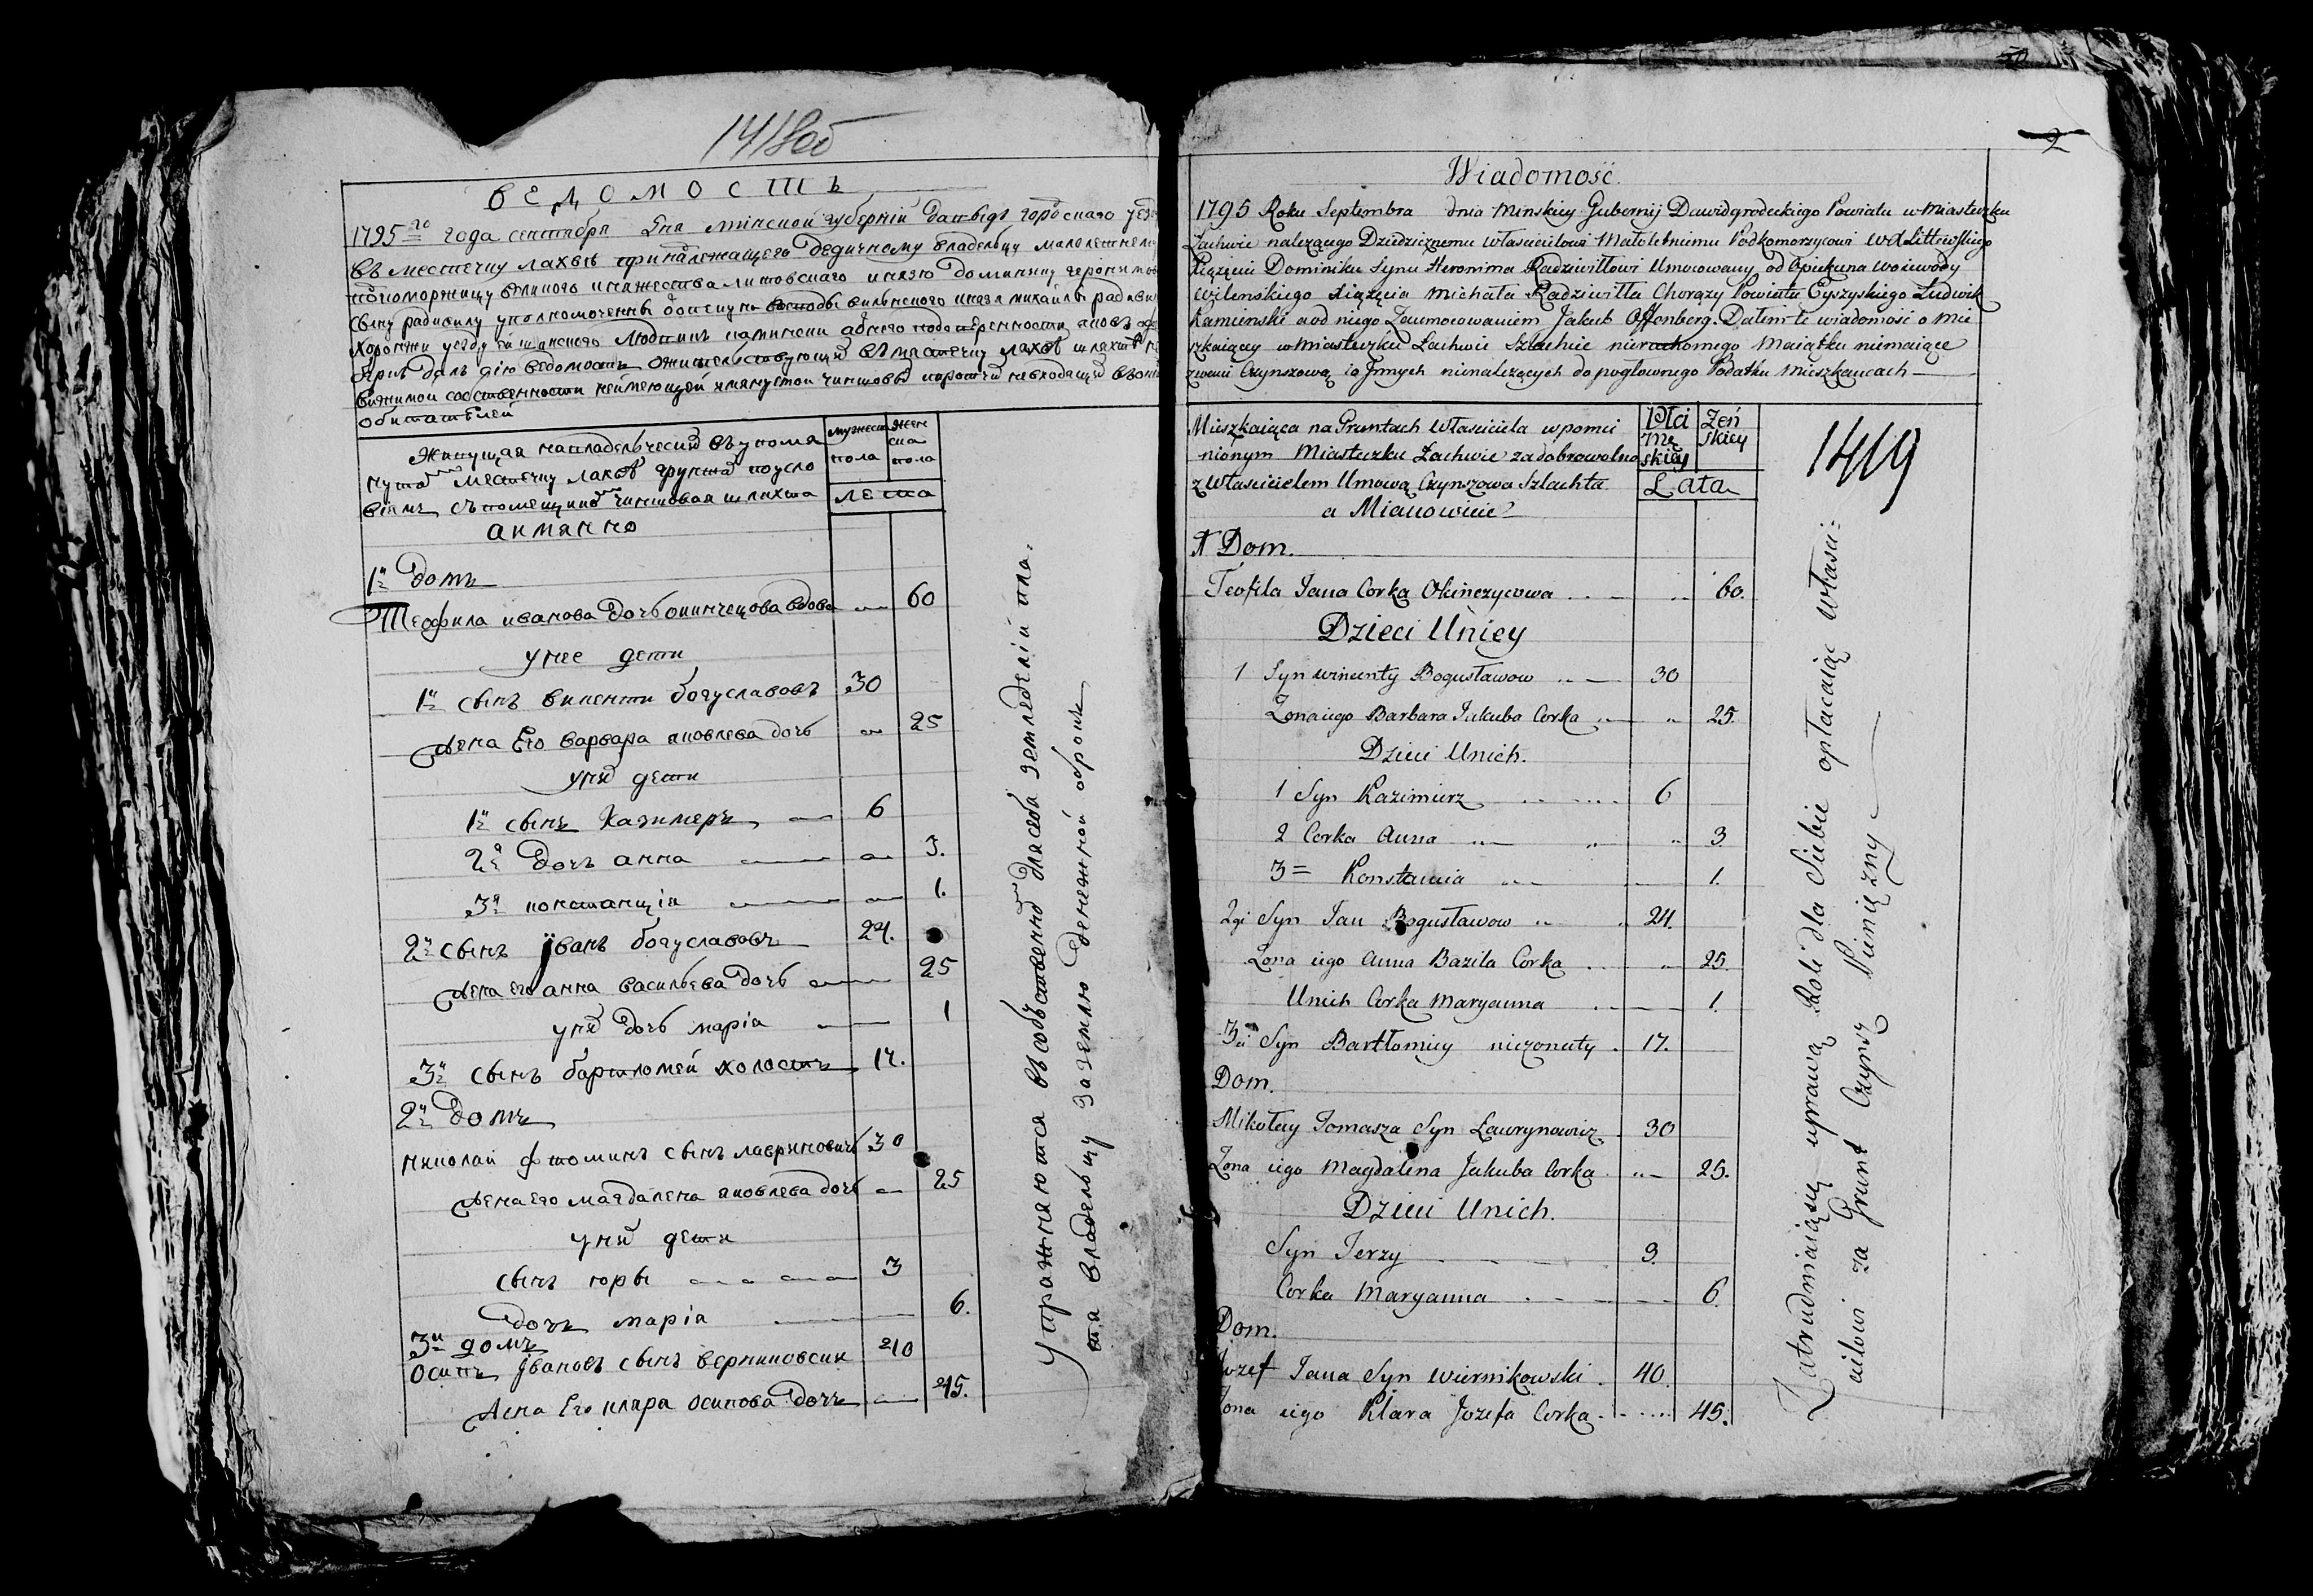 1418об
ВЕДОМОСТЬ
1795го года сентября Дня минской губерніи давыдъ городскаго
въ местечку лахвѣ принадлежащего дедичному владельцу малолетнему
подкоморжицу великого княжества литовского князю доминику геронимову
сыну радивилу уполномоченны
хоронжи уезду людвикъ камински
далъ сію ведомость
собственности неимеющей
обитателей
Живущая навладельческой въупомя
нутом местечку лахвѣ грунтах поусло
віямъ съпомещиком чиншовая шляхта
аимянно
мужеска пола
женска пола
лета
1й домъ
Теофила иванова дочь окинчецова вдова 60
унее дети
1й сынъ викенти богуславовъ 30
жена Его варвара яковлева дочь 25
уних дети
1й сынъ Казимеръ 6
2я дочь анна 3.
3я констанція 1.
2й сынъ іванъ богуславовъ 24.
жена его анна васильева дочь 25
уних дочь марія 1
3й сынъ бартломей холостъ 17.
2й домъ
николай фтоминъ сынъ лавриновичъ 30
жена Его магдалена яковлева дочь 25
уних дети
сынъ юры 3
дочь марія 6.
3й домъ
осипъ івановъ сынъ верниковски 40
жена Его клара осипова дочь 45.
упражняются въсобственном для себя земледеліи пла:
тя владельцу заземлю денежной оброкъ
2
Wiadomość.
1795 Roku Septembra dnia Minskiey Gubernij Dawidgrodeckiego Powiatu w Miasteczku
Lachwie nalezącego Dziedzicznemu Włascicielowi Małoletniemu Podkomorzycowi W d Littewskiego
Xiązęciu Dominiku Synu Heronima Radziwiłłowi Umocowany od Opiekuna Woiewody
Wilenskiego Xiązęcia Michała Radziwiłła Chorązy Powiatu Eyszyskiego Ludwik
Kamienski a od niego Zaumocowaniem Jakub Offenberg. Dałem te wiadomość o mie
szkaiącey w Miasteczku Lachwie Szlachcie nieruchomego Maiątku niemaiące
zwaney Czynszową i o Jnnych nienalezących do pogłownego Podatku Mieszkancach
Mieszkaiąca na Gruntach Własciciela wpomie
nionym Miasteczku Lachwie za dobrowolną
z Włascicielem Umową Czynszowa Szlachta
a Mianowicie
Płci Mę skiey
Zeń skiey
Lata
1419
1 Dom.
Teofila Jana Corka Okinczycowa 60.
Dzieci Uniey
1 Syn wincenty Bogusławow 30
Zona iego Barbara Jakuba Corka 25.
Dzieci Unich.
1 Syn Kazimierz 6
2 Corka Anna 3
3 = Konstancia 1.
2gi Syn Jan Bogusławow 24.
Zona iego Anna Bazila Corka 25.
Unich Corka Maryanna 1.
3ci Syn Bartłomiey niezonaty 17.
Dom.
Mikołay Tomasza Syn Ławrynowicz 30
Zona iego Magdalena Jakuba Corka 25.
Dzieci Unich.
Syn Jerzy 3.
Corka Maryanna 6.
Dom.
Jozef Jana Syn wiernikowski 40.
Zona iego Klara Jozefa Corka 45.
Zatrudniaiąsię uprawą Roli dla Siebie opłacaiąc właści:
cielowi za Grunt Czynsz Pieniężny